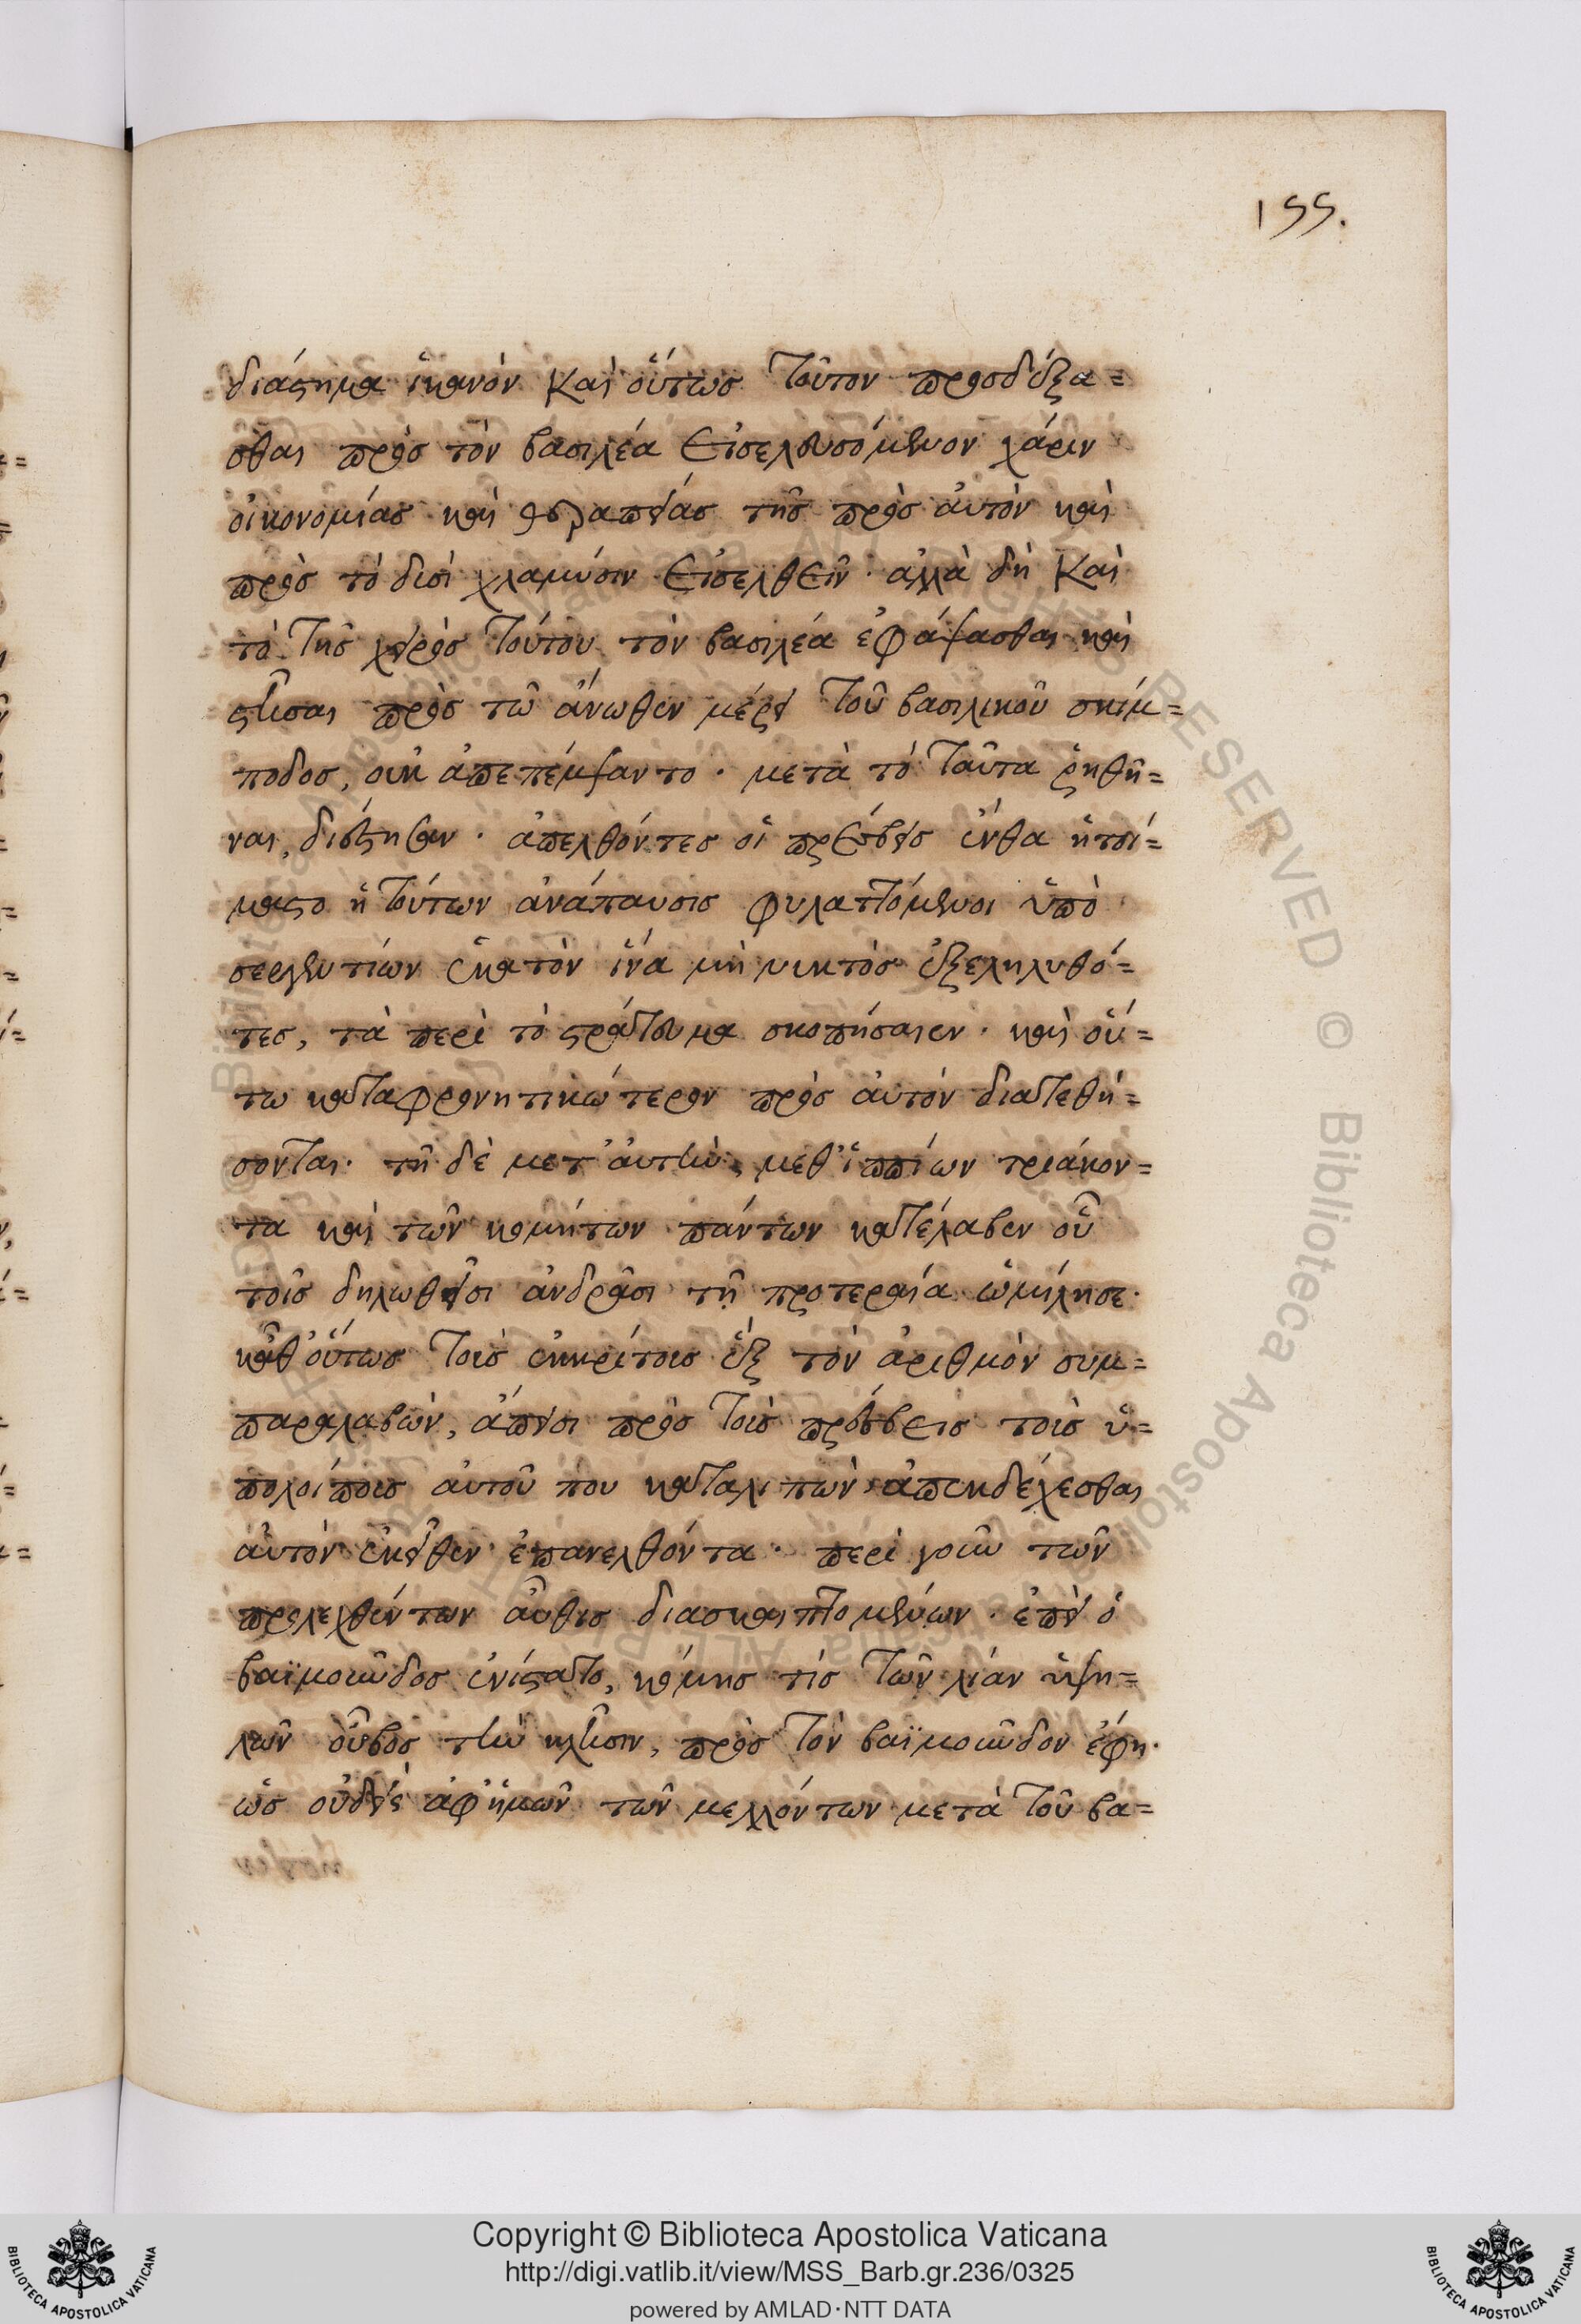 155.
διάστημα ἱκανὸν καὶ οὕτως τοῦτον προσδέξα=
σθαι πρὸς τὸν βασιλέα εἰσελευσόμενον χάριν
οἰκονομίας καὶ θεραπείας τῆς πρὸς αὐτὸν καὶ
πρὸς τὸ δισὶ χλαμύσιν εἰσελθεῖν · ἀλλὰ δὴ καὶ
τὸ τῆς χειρὸς τούτου τὸν βασιλέα ἐφάψασθαι καὶ
στῆσαι πρὸς τῶ ἄνωθεν μέρει τοῦ βασιλικοῦ σκίμ=
ποδος, οὐκ ἀπεπέμψαντο · μετὰ τὸ ταῦτα ῥηθῆ=
ναι, διέστησαν · ἀπελθόντες οἱ πρέσβεις ἔνθα ἡτοί=
μαστο ἡ τούτων ἀνάπαυσις φυλαττόμενοι ὑπὸ
σεργεντίων ἑκατὸν ἵνα μὴ νυκτὸς ἐξεληλυθό=
τες, τὰ περὶ τὸ στράτευμα σκοπήσαιεν · καὶ οὕ=
τω καταφρονητικώτερον πρὸς αὐτὸν διατεθή=
σονται · τῆ δὲ μετ' αὐτὴν, μεθ' ἱππέων τριάκον=
τα καὶ τῶν κομήτων πάντων κατέλαβεν οὗ
τοῖς δηλωθεῖσι ἀνδράσι τῆ προτεραία ὡμίλησε ·
καθ' οὕτως τοὺς ἐκκρίτους ἓξ τὸν ἀριθμὸν συμ=
παραλαβὼν, ἄπεισι πρὸς τοὺς πρέσβεις τοὺς ὑ=
πολοίπους αὐτοῦ που καταλιπὼν ἀπεκδέχεσθαι
αὐτὸν ἐκεῖθεν ἐπανελθόντα · περὶ γοῦν τῶν
προλεχθέντων αὖθις διασκεπτομένων · ἐπεὶ ὁ
βαϊμοῦνδος ἐνίστατο, κόμης τίς τῶν λίαν ὑψη=
λῶν οὖβος τὴν κλῆσιν, πρὸς τὸν βαϊμοῦνδον ἔφη ·
ὡς οὐδεὶς ἀφ' ἡμῶν τῶν μελλόντων μετὰ τοῦ βα=
Copyright © Biblioteca Apostolica Vaticana
http://digi.vatlib.it/view/MSS_Barb.gr.236/0325
powered by AMLAD·NTT DATA
BIBLIOTECA APOSTOLICA VATICANA
BIBLIOTECA APOSTOLICA VATICANA